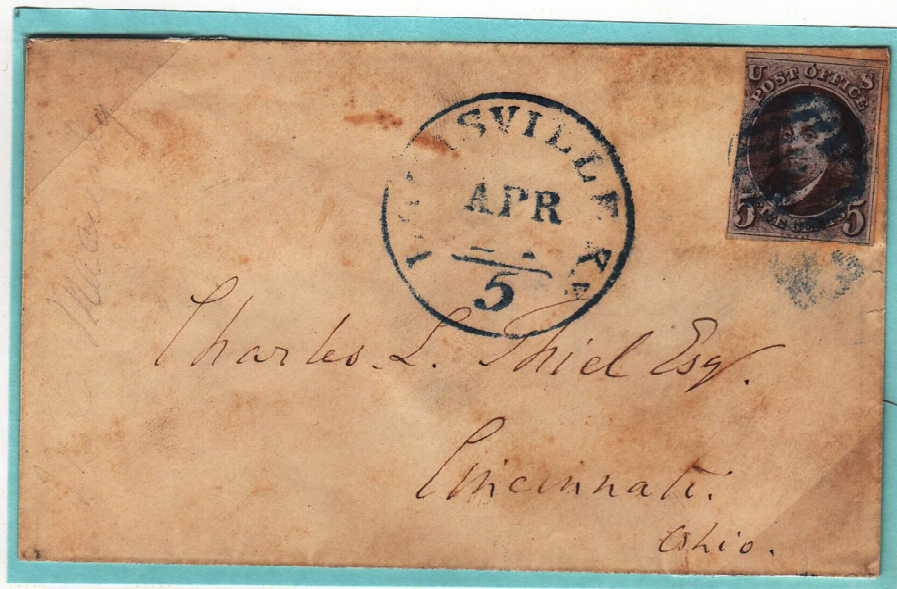 U S
POST OFFICE
5 FIVE CENTS 5
LOUISVILLE KY
APR
5
Charles L. Thiel Esq.
Cincinnati.
Ohio.